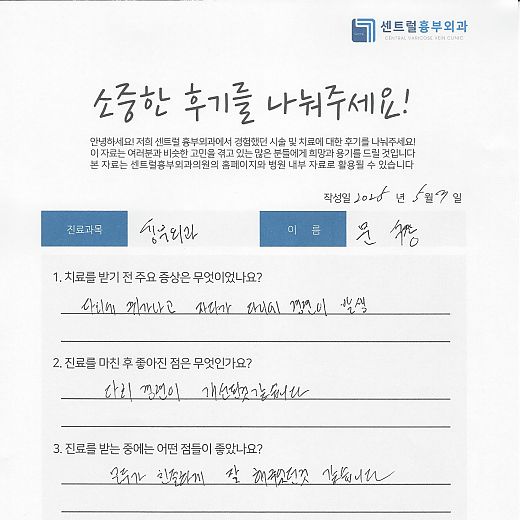 센트럴흉부외과
CENTRAL VARICOSE VEIN CLINIC
소중한 후기를 나눠주세요!
안녕하세요! 저희 센트럴 흉부외과에서 경험했던 시술 및 치료에 대한 후기를 나눠주세요!
이 자료는 여러분과 비슷한 고민을 겪고 있는 많은 분들에게 희망과 용기를 드릴 것입니다
본 자료는 센트럴흉부외과의원의 홈페이지와 병원 내부 자료로 활용될 수 있습니다
작성일 년 5월 일
진료과목 흉부외과 이 름 문
1. 치료를 받기 전 주요 증상은 무엇이었나요?
다리에 쥐가나고 자다가 다리에 경련이 발생
2. 진료를 마친 후 좋아진 점은 무엇인가요?
다리 경련이 개선된것같습니다
3. 진료를 받는 중에는 어떤 점들이 좋았나요?
모두가 친절하게 잘 해주셨던것 같습니다